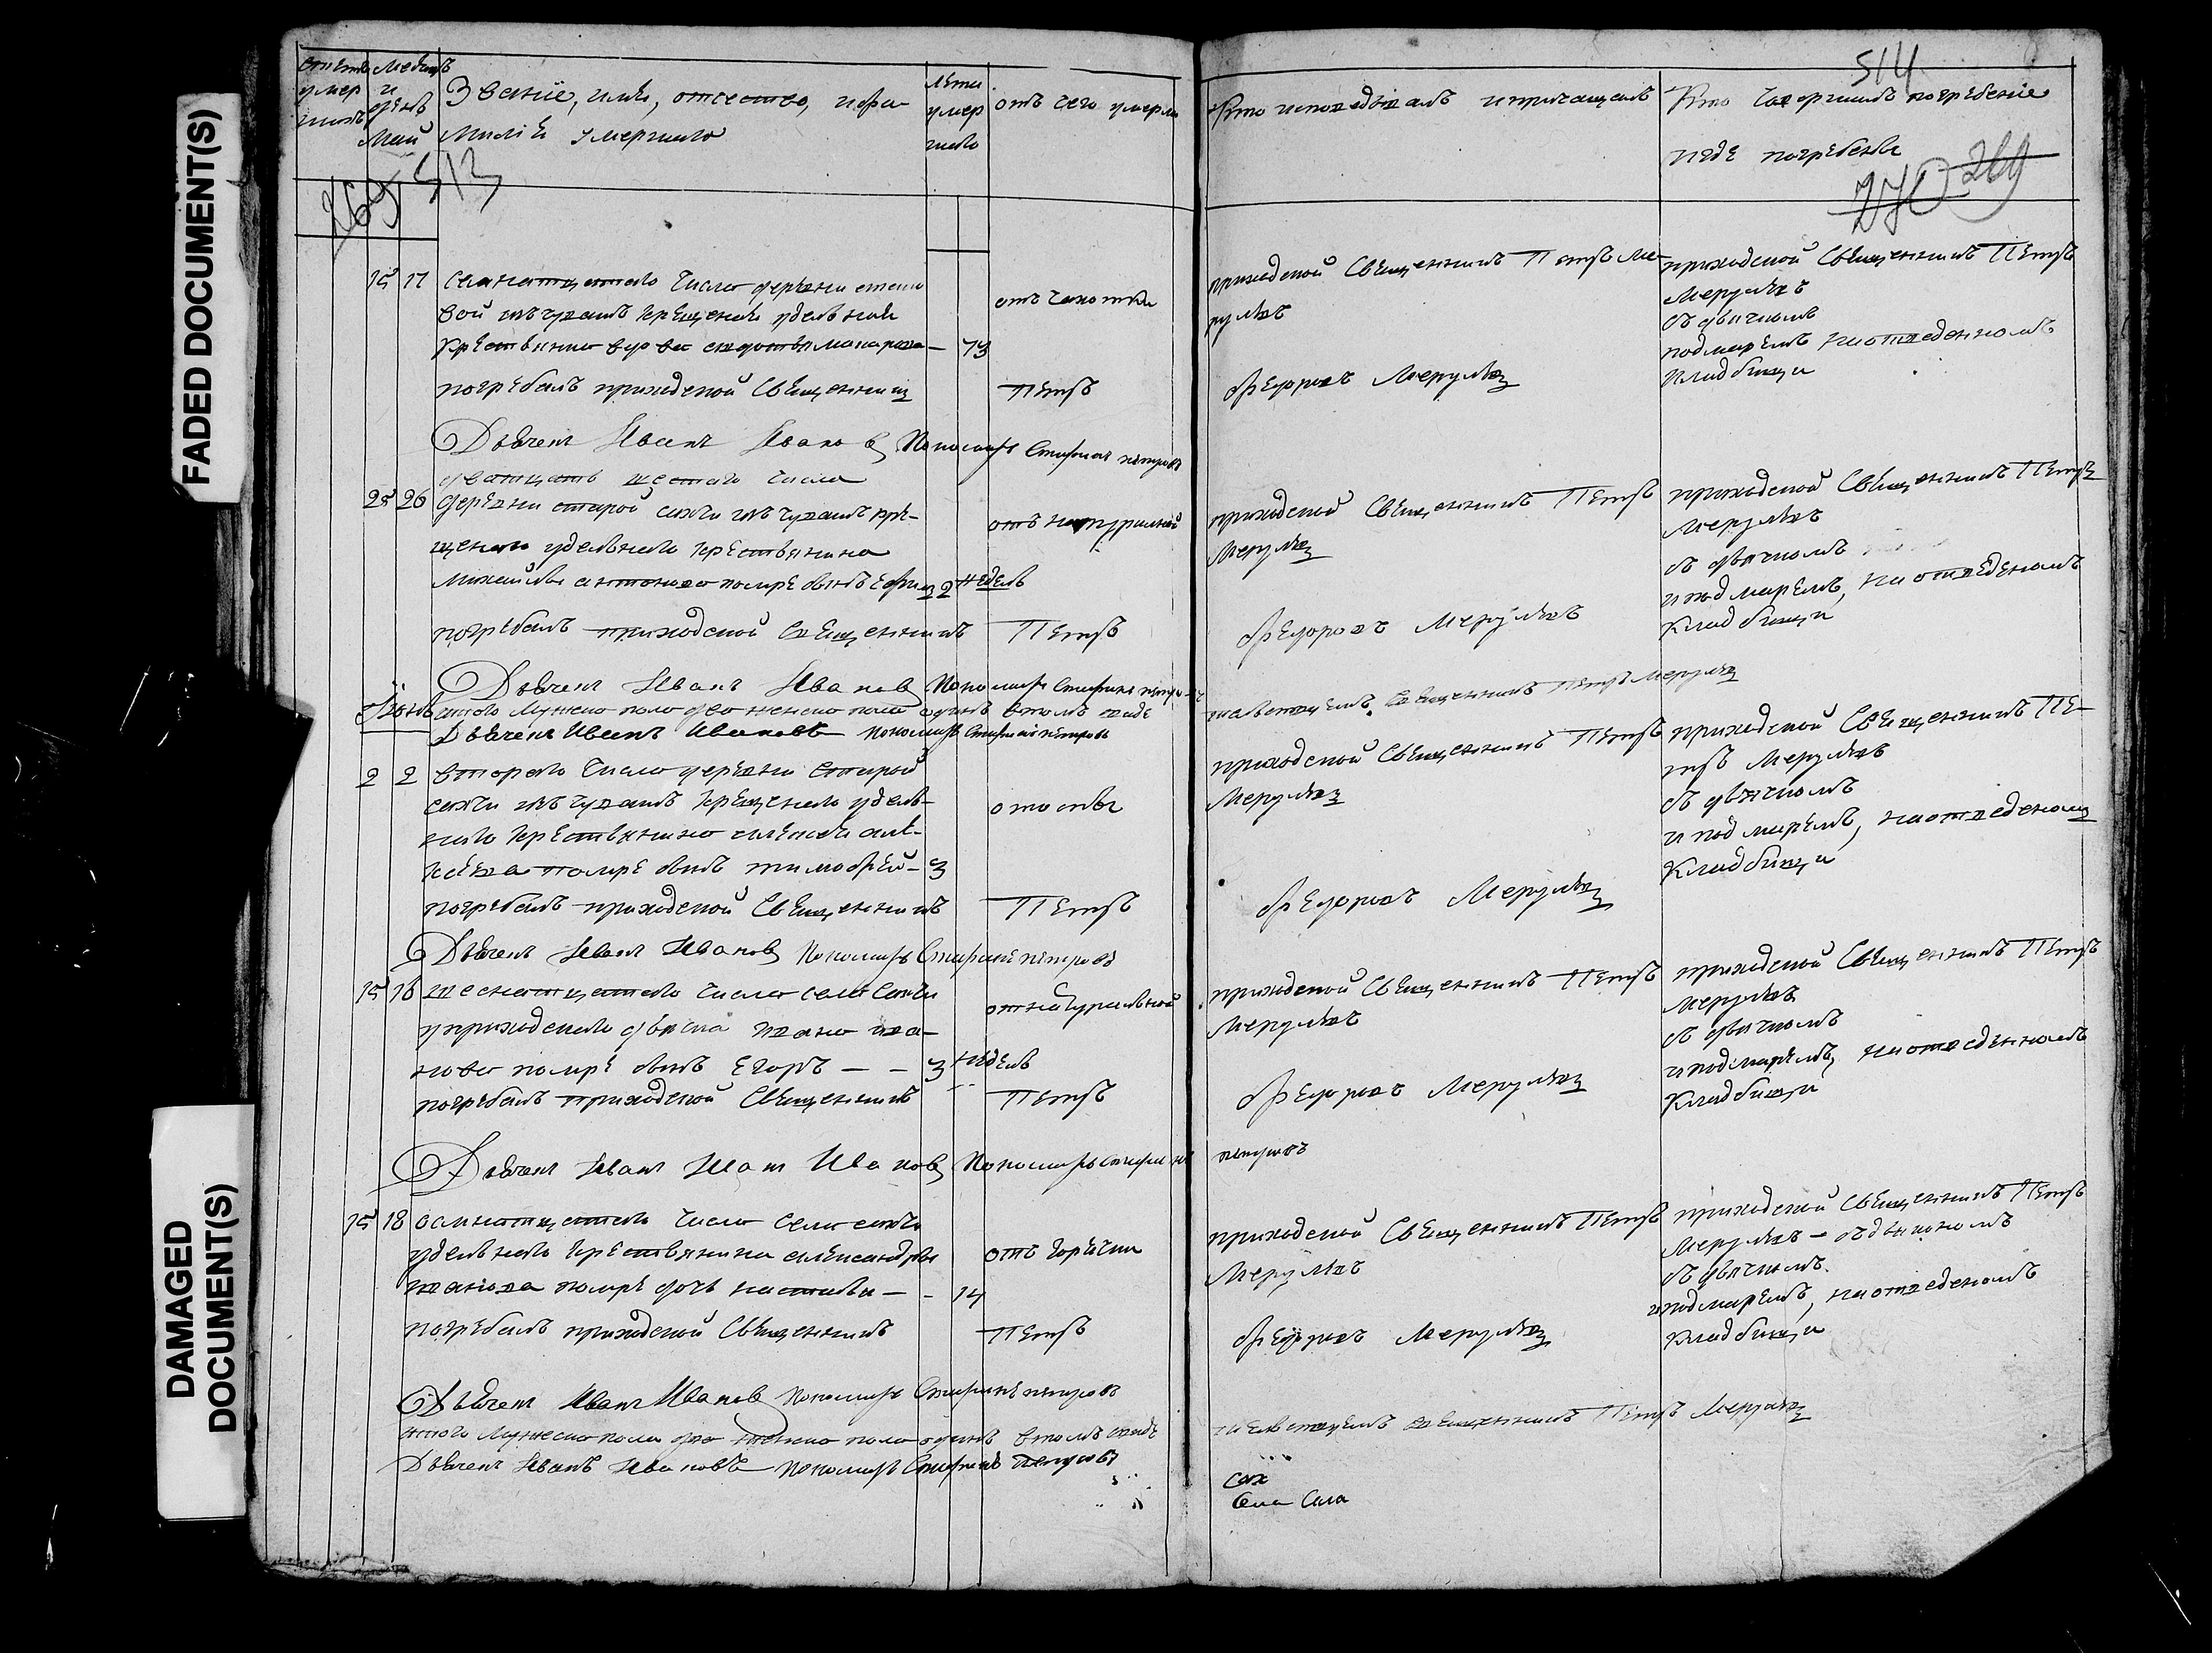 FADED DOCUMENT(S)
DAMAGED
DOCUMENT(S)
умер
и
день
Май
Званіе, имя, отчество, и фа-
миліѣ умершаго
лѣта
умер
шаго
отъ чего умерли
Кто исповедывалъ и причащалъ
514
Кто совершилъ погребеніе
и гдѣ погребены
270 269
269 513
15 17
числа деревни
вой изъ чувашъ крещенаго удельнаго
крестьянина вдова 73
отъ чахотки
приходской Священникъ Петръ Ме-
рулѣвъ
приходской Священникъ Петръ
Мерулѣвъ
съ дьячкомъ
пономаремъ на отведенномъ
кладбищи
погребалъ приходской Священникъ Петръ Федоровъ Мерулѣвъ
Дьячекъ Иванъ Иванов Пономарь Петровъ
дватцать шестаго числа
25 26
деревни старой изъ чувашъ кре-
щенаго удельнаго крестьянина
Михайлы Антонова помре сынъ 2 недель
отъ натуральной
приходской Священникъ Петръ
Мерулѣвъ
приходской Священникъ Петръ
Мерулѣвъ
съ дьячкомъ
и пономаремъ, на отведеномъ
кладбищи
погребалъ приходской Священникъ Петръ Федоровъ Мерулѣвъ
Дьячекъ Иванъ Иванов Пономарь
Июнь
итого мужеска пола два женска пола одинъ в томъ Священникъ Петръ Мерулѣвъ
Дьячекъ Иванъ Ивановъ пономарь Петровъ
2 2
втораго числа деревни старой
изъ чувашъ крещенаго удель-
наго крестьянина Алексея Але-
ксеева помре сынъ Тимофей - 3
отъ оспы
приходской Священникъ Петръ
Мерулѣвъ
приходской Священникъ Пе-
тръ Мерулѣвъ
съ дьячкомъ
и пономаремъ, на отведеномъ
кладбищи
погребалъ приходской Священникъ Петръ Федоровъ Мерулѣвъ
Дьячекъ Иванъ Иванов Пономарь Петровъ
15 16
шеснатцетаго числа села
у приходскаго дьячка Ивана Ива-
нова помре сынъ Егоръ - - 3 недель
от натуральной
приходской Священникъ Петръ
Мерулѣвъ
приходской Священникъ Петръ
Мерулѣвъ
съ дьячкомъ
и пономаремъ, на отведенномъ
кладбищи
погребалъ приходской Священникъ Петръ Федоровъ Мерулѣвъ
Дьячекъ Иванъ Иван Иванов Пономарь Петровъ
15 18
осмнатцетаго числа села
удельнаго крестьянина Александры
Иванова помре дочь Настасья - - 14
отъ горячки
приходской Священникъ Петръ
Мерулѣвъ
приходской Священникъ Петръ
Мерулѣвъ -
съ дьячкомъ
и пономаремъ, на отведеномъ
кладбищи
погребалъ приходской Священникъ Петръ Федоровъ Мерулѣвъ
Дьячекъ Иванъ Иванов Пономарь Петровъ
итого мужеска пола два женска пола одинъ в томъ Священникъ Петръ Мерулѣвъ
Дьячекъ Иванъ Ивановъ Пономарь Петровъ